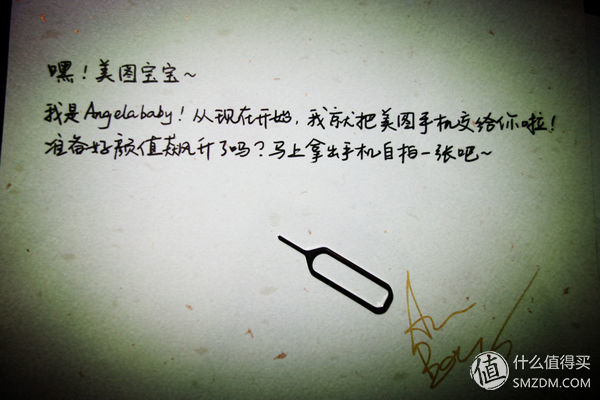 嘿！美图宝宝～
我是Angelababy！从现在开始，我就把美图手机交给你啦！
准备好颜值飙升了吗？马上拿出手机自拍一张吧～
值 什么值得买
SMZDM.COM